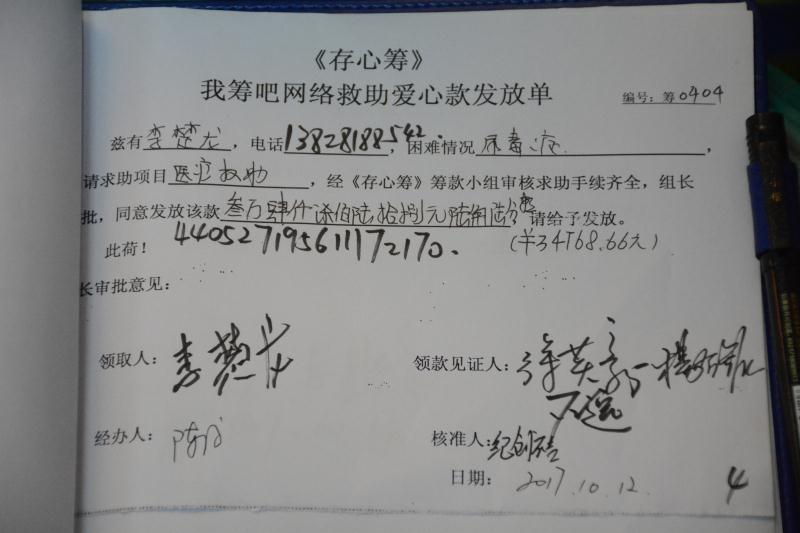 《存心筹》
我筹吧网络救助爱心款发放单
编号：筹0404
兹有李楚龙，电话13828188542，困难情况尿毒症，
请求助项目医疗救助，经《存心筹》筹款小组审核求助手续齐全，组长
批，同意发放该款叁万肆仟柒佰陆拾捌元陆角陆分 请给予发放。
此荷！440527195611172170. (¥34768.66元)
长审批意见：
领取人：李楚龙 领款见证人：
经办人： 核准人：纪创
日期：2017.10.12. 4